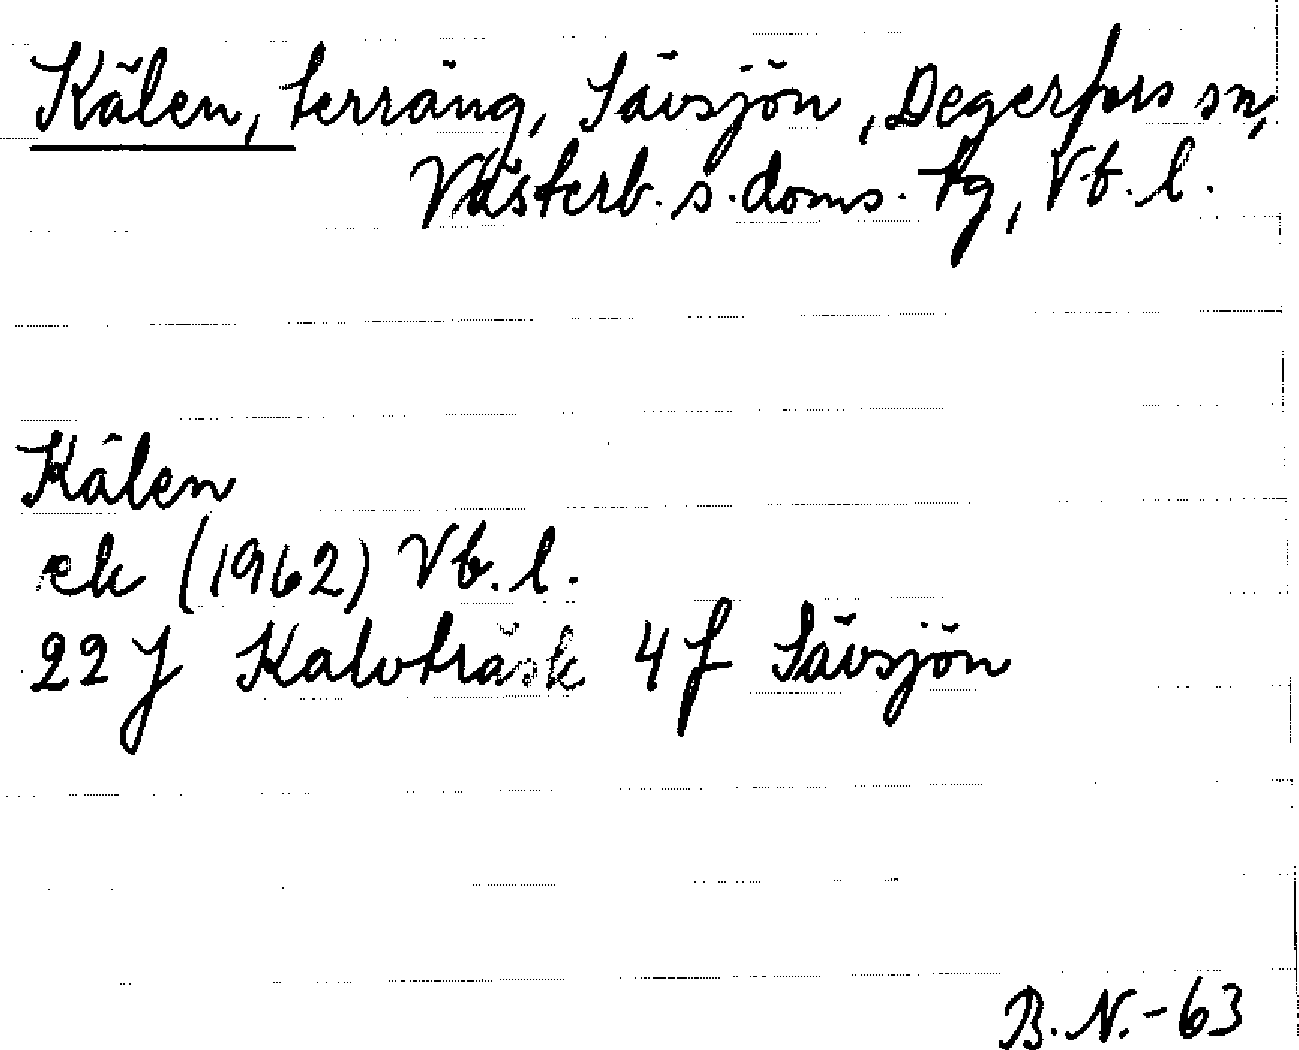 Kälen, terräng, Sävsjön, Degerfors sn,
Västerb. s. doms. tg, Vb. l.
Kälen
ek (1962) Vb. l.
22 J Kalvträsk 4 f Sävsjön
B. N. - 63